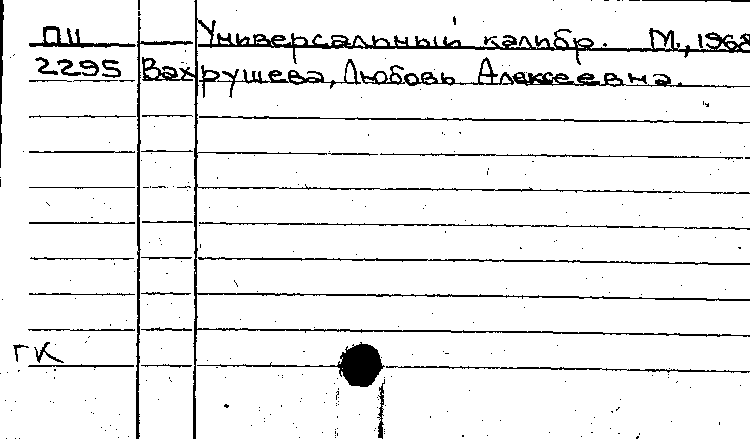 П11 Универсальный калибр. М., 1968
2295 Вахрушева, Любовь Алексеевна.
ГК